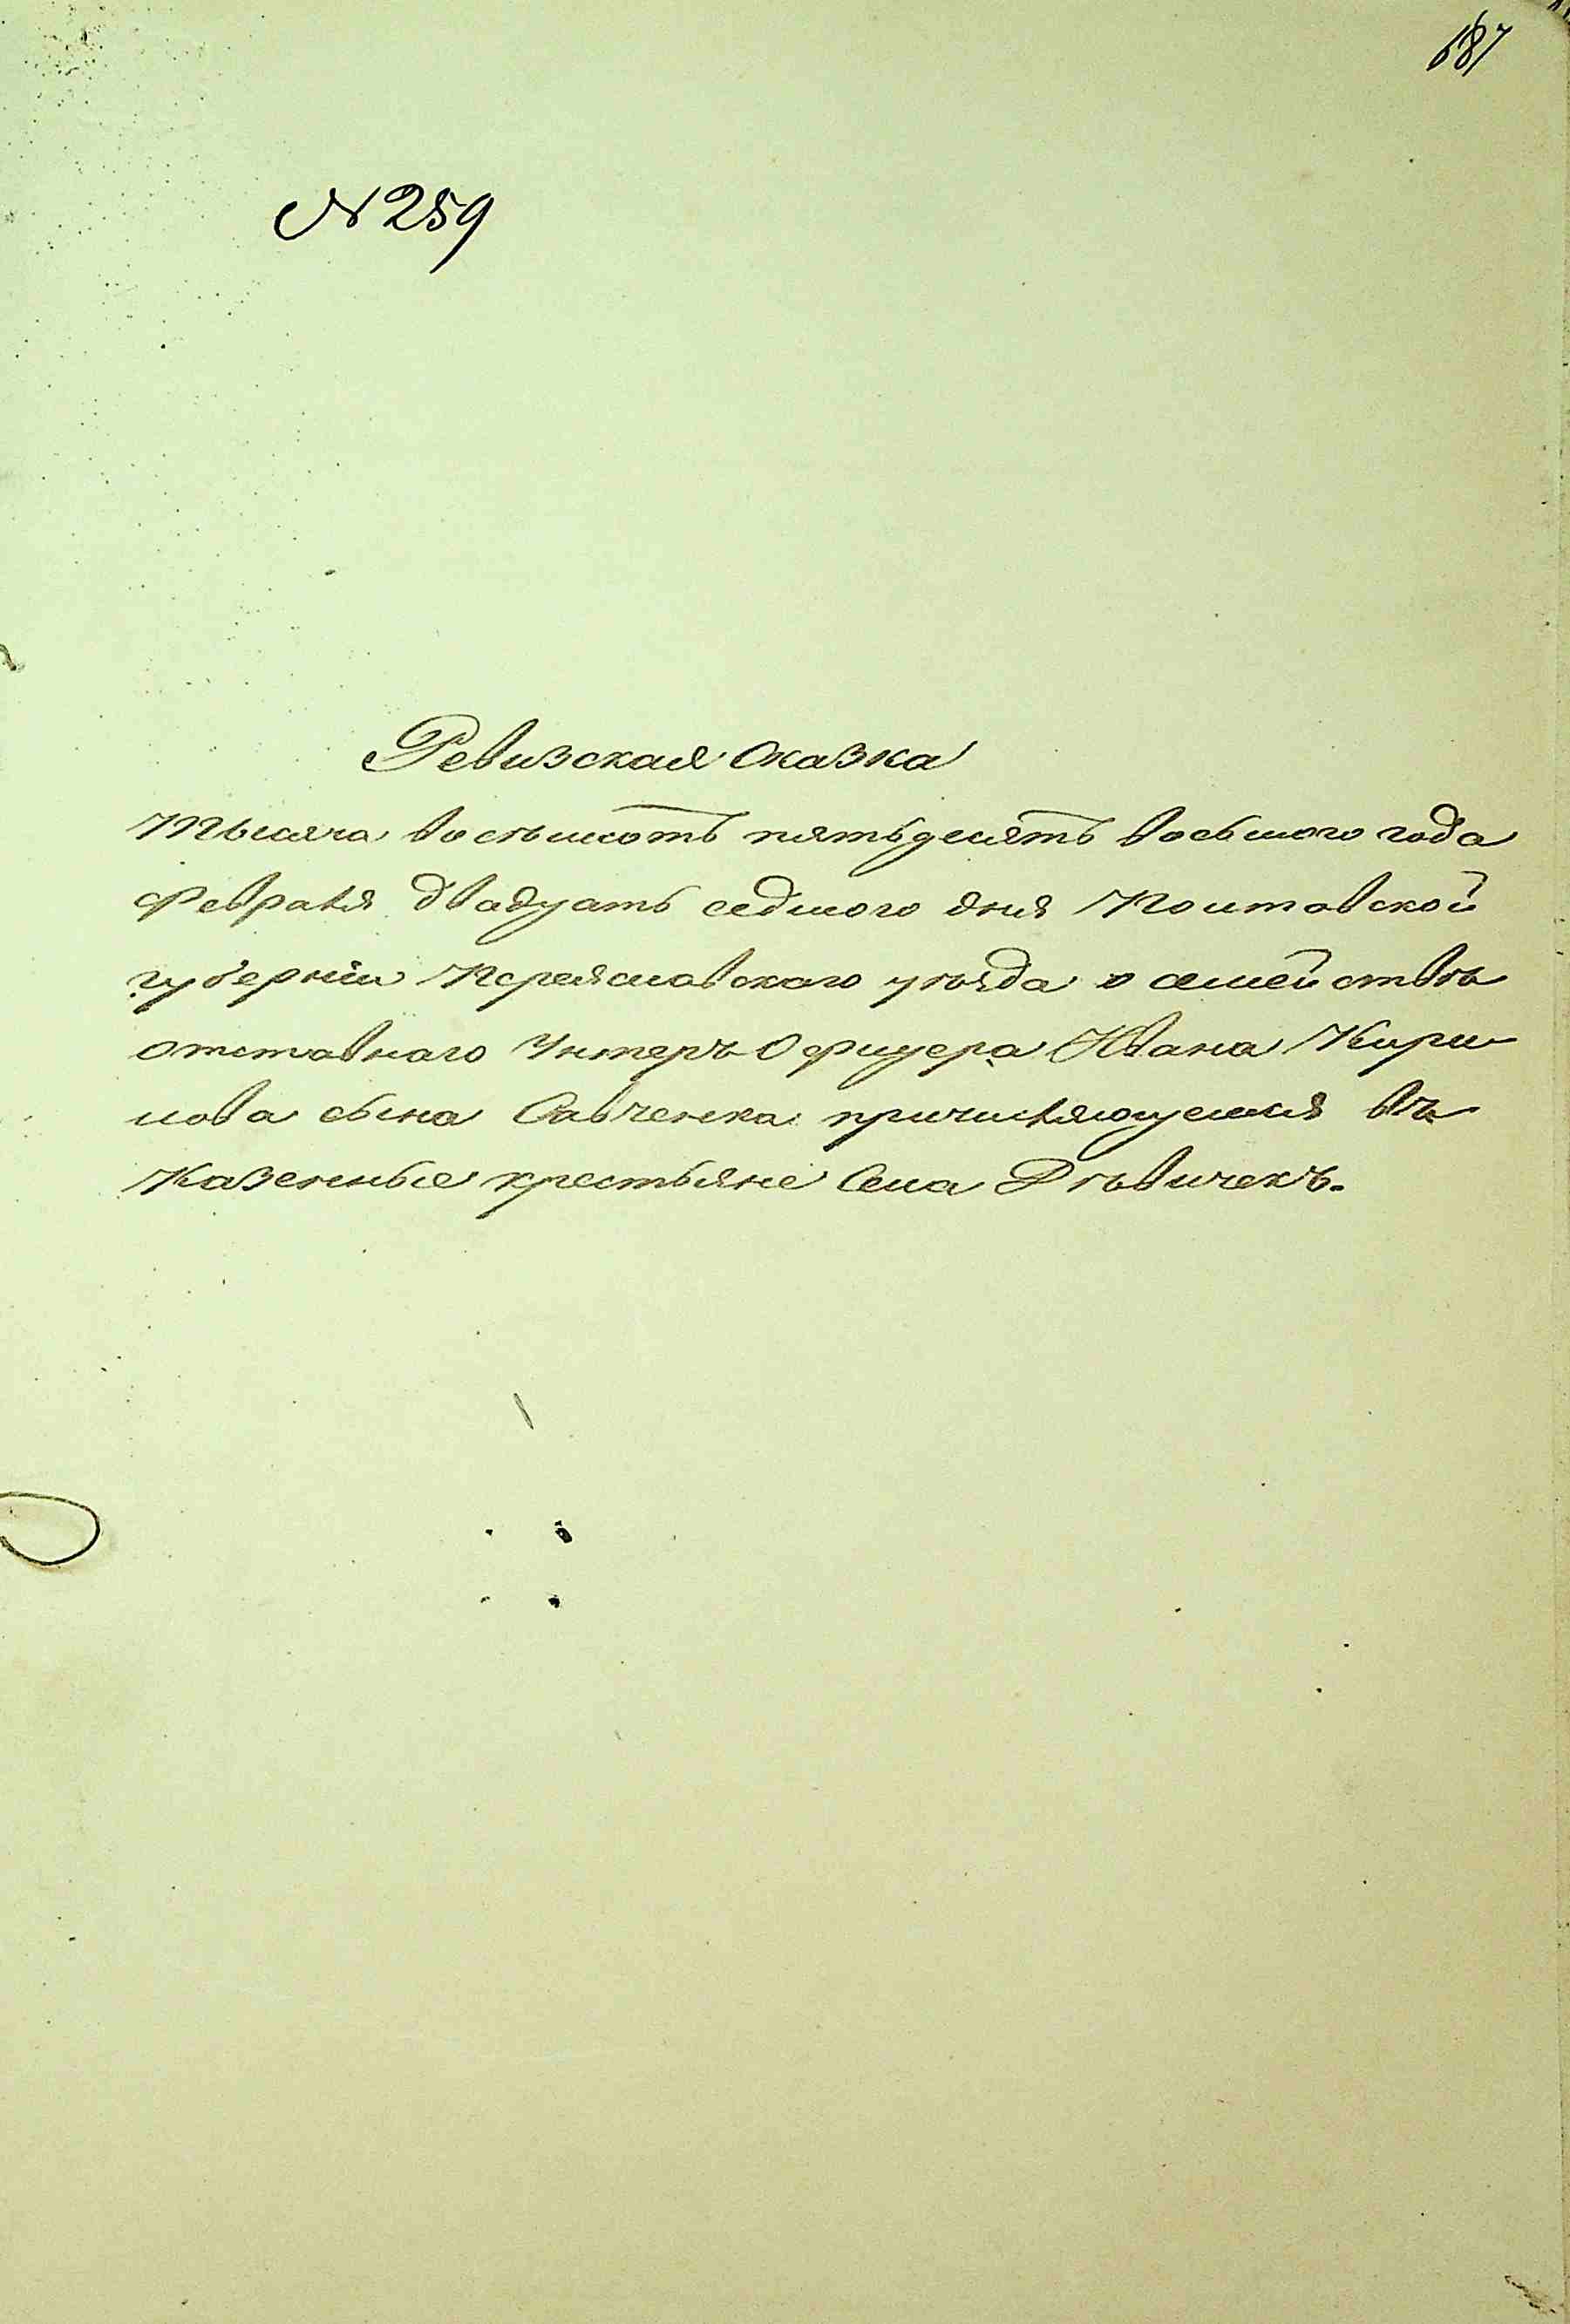 687
№ 259
Ревизская сказка
Тысяча восѣмсотъ пятьдесятъ восьмого года
Февраля двадцать седмого дня Полтавской
губерніи Переяславскаго уѣзда о семействѣ
отставнаго Унтеръ-Офицера Ивана Кири-
лова сына Савченка причисляющемся въ
Казенные крестьяне Села Дѣвичекъ.